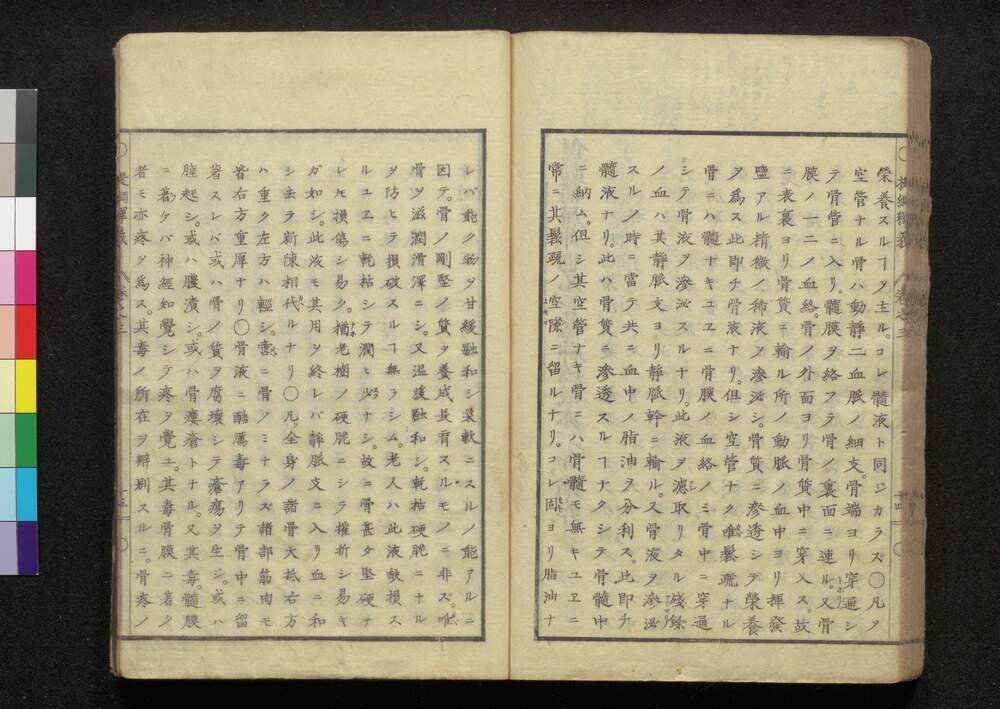 榮養スルヿヲ主ル。コレ髓液ト同ジカラス〇凡ソ
空管ナル骨ハ動靜二血脈ノ細支。骨端ヨリ穿通シ
テ骨管ニ入リ。髓膜ヲ絡フテ骨ノ裏面ニ連ル。又骨
膜ノ一二ノ血絡。骨ノ外面ヨリ骨質中ニ穿入ス。故
ニ表裏ヨリ骨質ニ輸ル所ノ動脈ノ血中ヨリ揮發
鹽アル精微ノ稀液ヲ滲泌シ。骨質ニ滲透シテ榮養
ヲ爲ス此即チ骨液ナリ。但シ空管ナク唯鬆疏ナル
骨ニハ髓ナキユヱニ骨膜ノ血絡ノミ骨中ニ穿通
シテ骨液ヲ滲泌スルナリ。此液ヲ濾取リタル殘餘
ノ血ハ其靜脈支ヨリ靜脈幹ニ輸ル。又骨液ヲ滲泌
スルノ時ニ當テ共ニ血中ノ脂油ヲ分利ス。此即チ
髓液ナリ。此ハ骨質ニ滲透スルヿナクシテ骨髓中
ニ納ム。但シ其空管ナキ骨ニハ骨髓モ無キユヱニ
常ニ其鬆疏ノ空隙ニ留ルナリ。コレ固ヨリ脂油ナ
レバ能ク物ヲ甘緩融和シ柔軟ニスルノ能アルニ
因テ。骨ノ剛堅ノ質ヲ養成長育スルモノニ非ス。唯
骨ヲ滋潤滑澤ニシ。又温緩融和シ。乾枯硬脆ニナル
ヲ防ヒテ損破スルヿ無ラシム。老人ハ此液敏損ス
ルユヱニ乾枯シテ潤ヒ少ナシ。故ニ骨甚タ堅硬ナ
レモ損傷シ易ク。猶老樹ノ硬脆ニシテ摧折シ易キ
ガ如シ。此液モ其用ヲ終レバ靜脈支ニ入リ血ニ和
シ去テ新陳相代ルナリ〇凡全身ノ諸骨大抵右方
ハ重ク左方ハ輕シ。啻ニ骨ノミナラズ諸部筋肉モ
皆右方重厚ナリ〇骨液ニ酷厲毒アリテ骨中ニ留
著スレバ或ハ骨ノ質ヲ腐壞シテ瘡瘍ヲ生シ。或ハ
腫起シ。或ハ膿潰シ。或ハ骨瘻瘡トナル。又其毒。髓膜
ニ著ケバ神經知覺シテ疼ヲ覺ユ。其毒骨膜ニ著ク
者モ亦疼ヲ爲ス。其毒ノ所在ヲ辨别スルニ。骨疼ノ